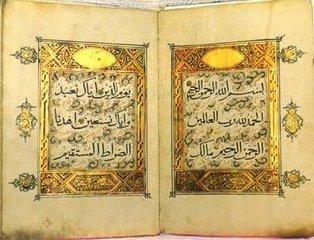 بسم الله الرحمن الرحيم
الحمد لله رب العالمين
الرحمن الرحيم مالك
يوم الدين اياك نعبد
واياك نستعين اهدنا
الصراط المستقيم